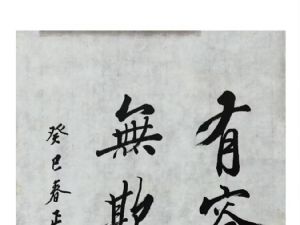 有容
無欺
癸巳春正